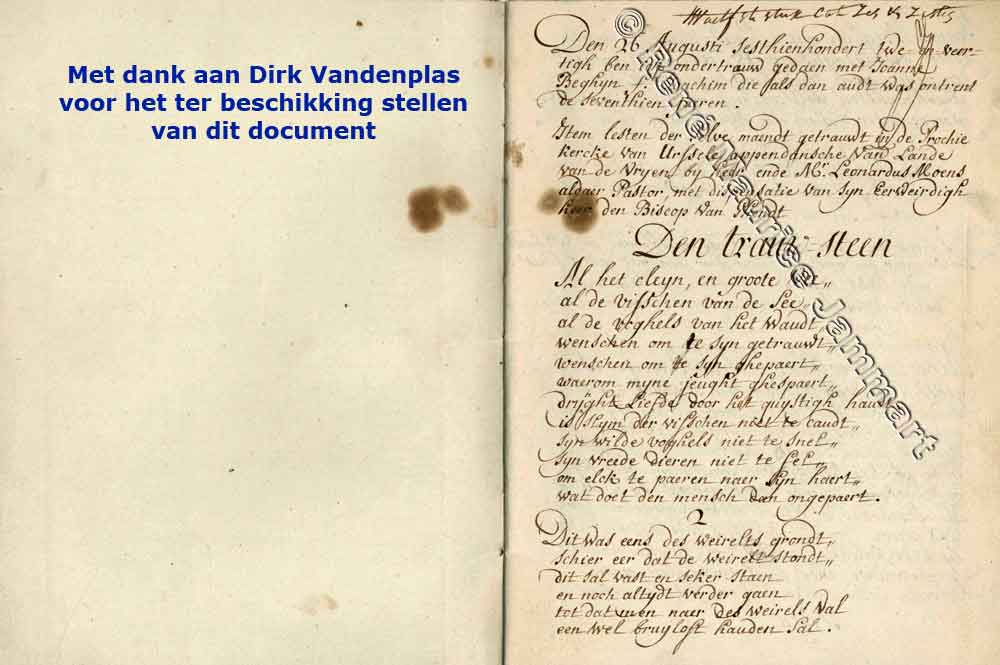 Met dank aan Dirk Vandenplas
voor het ter beschikking stellen
van dit document
Den 26 Augusti sesthienhondert twe en veer-
tigh ben in ondertrauw gedaen met Joanne
Beghyn Joachim die als dan audt was ontrent
de seventhien jaeren.
Item lesten der selve maendt getrauwt in de Prochie
kercke van Urssele appendansche van Lande
van de Vryen by heer ende Mr. Leonardus Moens
aldaer Pastor met dispensatie van syn Eerweirdigh
heer den Biscop van Ghendt
Den trauw-steen
Al het cleyn, en groote
al de visschen van de See
al de voghels van het waudt
wenschen om te syn getrauwt
wenschen om te syn ghepaert
waerom myne jeught ghespaert
dryght Liefde door het quystigh haudt
is slym der visschen niet te caudt
syn wilde voghels niet te snel
syn vreede dieren niet te fel
om elck te paeren naer syn haert
wat doet den mensch dan ongepaert.
2
Dit was eens des weirelts grondt
schier eer dat de weirelt stondt
dit sal vast en seker staen
en noch altydt verder gaen
tot dat men naer des weirels val
een wel bruyloft hauden sal.
© René Maurice Jammart